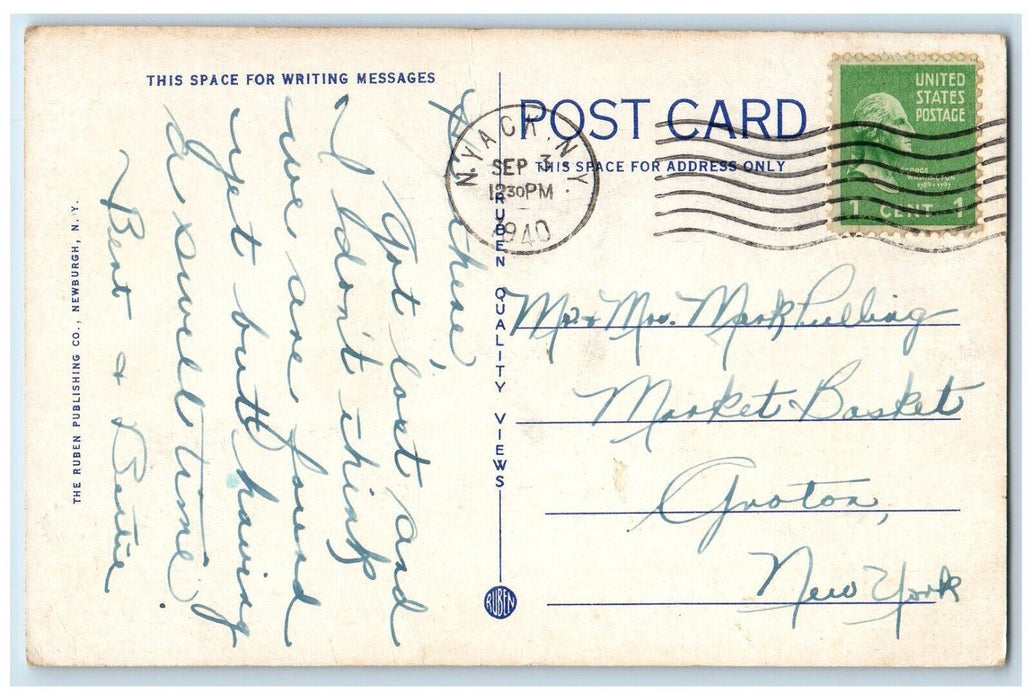 THIS SPACE FOR WRITING MESSAGES
Hi there,
Got lost and
I don't think
we are found
yet but having
a swell time.
Bert &
THE RUBEN PUBLISHING CO., NEWBURGH, N. Y.
RUBEN QUALITY VIEWS
RUBEN
POST CARD
THIS SPACE FOR ADDRESS ONLY
NYACK, N.Y.
SEP 3
1230PM
1940
UNITED
STATES
POSTAGE
GEORGE
WASHINGTON
1789-1797
1 CENT 1
Mr & Mrs. Mark Pulling
Market Basket
Groton,
New York